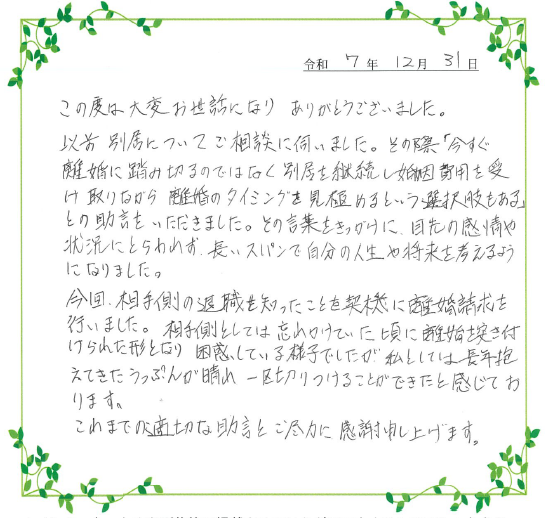 令和 7年 12月 31日
この度は大変お世話になり ありがとうございました。
以前 別居についてご相談に伺いました。その際「今すぐ
離婚に踏み切るのではなく 別居を継続し婚姻費用を受
け取りながら 離婚のタイミングを見極めるという選択肢もある」
との助言をいただきました。その言葉をきっかけに、目先の感情や
状況にとらわれず、長いスパンで自分の人生や将来を考えるよう
になりました。
今回、相手側の退職を知ったことを契機に離婚請求を
行いました。相手側としては忘れかけていた頃に離婚を突き付
けられた形となり 困惑している様子でしたが 私としては 長年抱
えてきたうっぷんが晴れ 一区切りつけることができたと感じてお
ります。
これまでの適切な助言と ご尽力に 感謝申し上げます。